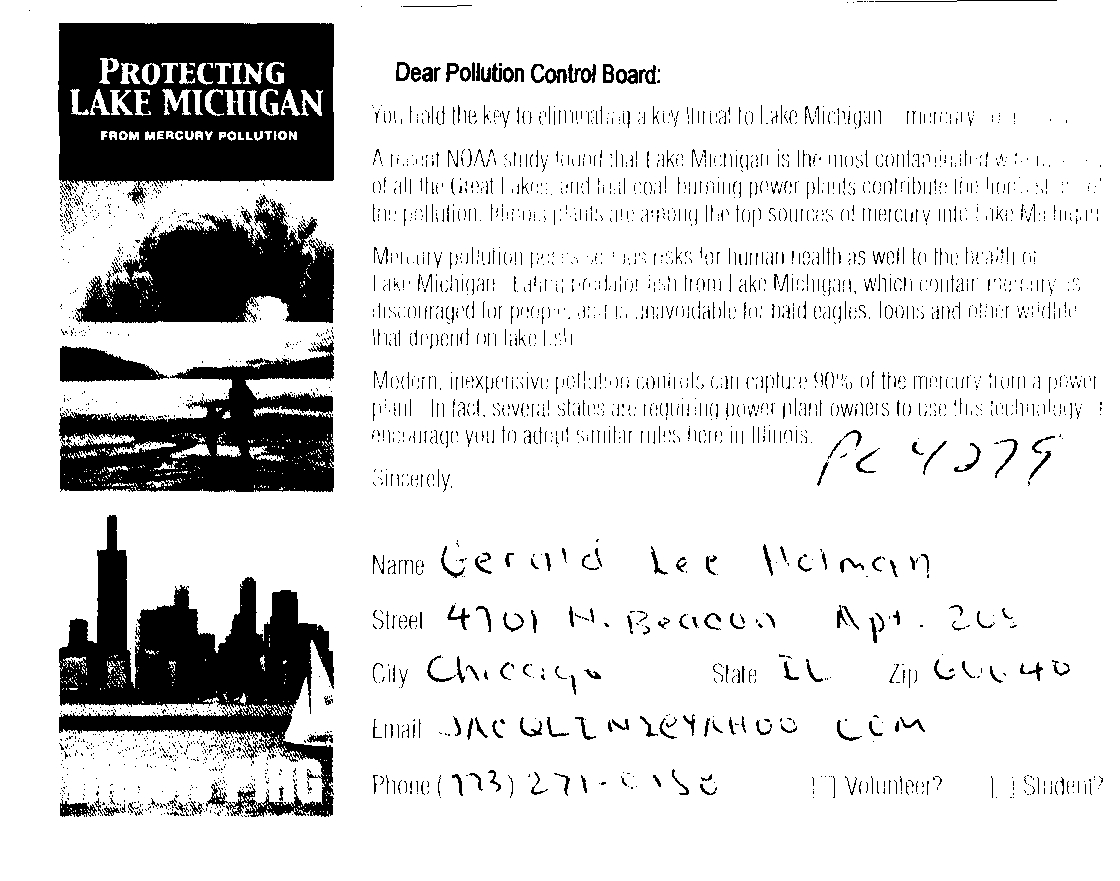 PROTECTING
LAKE MICHIGAN
FROM MERCURY POLLUTION
Dear Pollution Control Board:
You hold the key to eliminating a key threat to Lake Michigan mercury
A recent NOAA study found that Lake Michigan is the most contaminated
of all the Great Lakes, and that coal-burning power plants contribute the of
the pollution. Illinois plants are among the top sources of mercury into Lake Michigan
Mercury pollution poses serious risks for human health as well to the health of
Lake Michigan. Eating predator fish from Lake Michigan, which contain mercury is
discouraged for people, and is unavoidable for bald eagles, loons and other wildlife
that depend on lake fish
Modern, inexpensive pollution controls can capture 90% of the mercury from a power
plant. In fact, several states are requiring power plant owners to use this technology. I
encourage you to adopt similar rules here in Illinois.
PC 4279
Sincerely,
Name Gerald Lee Holman
Street 4701 N. Beacon Apt.
City Chicago State IL Zip 60640
Email
Phone (773) 271-
[ ] Volunteer? [ ] Student?
PIRG